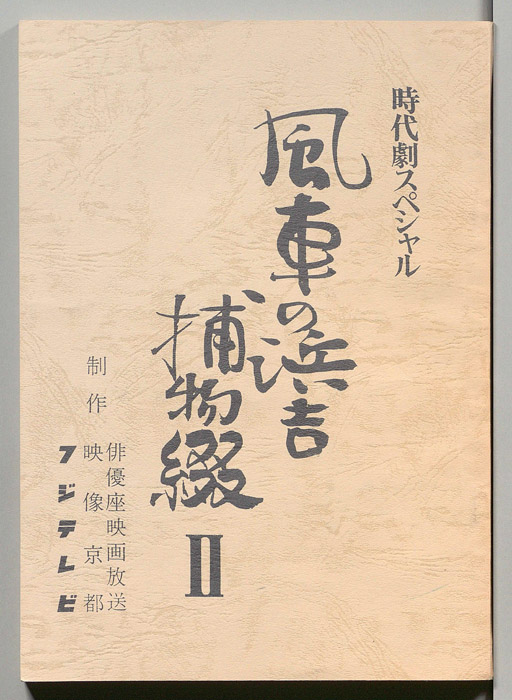 時代劇スペシャル
風車の浜吉
捕物綴
II
制作
俳優座映画放送
映像京都
フジテレビ